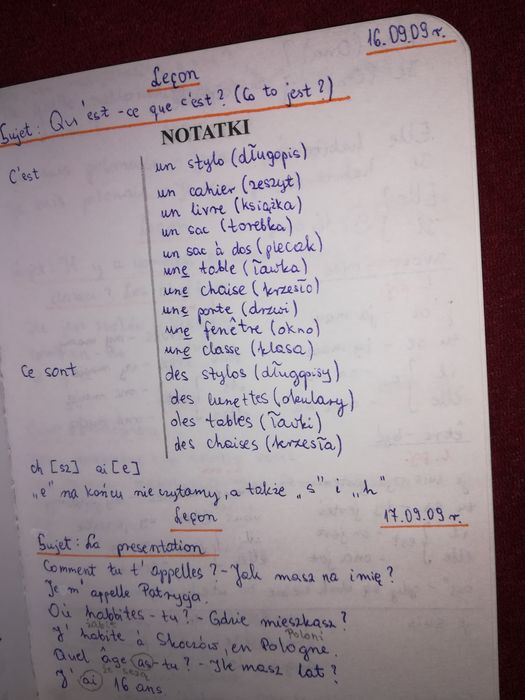 16.09.09 r.
Leçon
Sujet: Qu'est-ce que c'est? (Co to jest?)
NOTATKI
C'est un stylo (długopis)
un cahier (zeszyt)
un livre (książka)
un sac (torebka)
un sac à dos (plecak)
une table (ławka)
une chaise (krzesło)
une porte (drzwi)
une fenêtre (okno)
une classe (klasa)
Ce sont des stylos (długopisy)
des lunettes (okulary)
des tables (ławki)
des chaises (krzesła)
ch [sz] ai [e]
„e" na końcu nie czytamy, a także „s" i „h"
Leçon 17.09.09 r.
Sujet: La presentation
Comment tu t'appelles? - Jak masz na imię?
Je m'appelle Patrycja.
Où habbites - tu? - Gdzie mieszkasz?
J'habite à Skoczów, en Pologne.
Poloni
Quel âge as-tu? - Ile masz lat?
J'ai 16 ans